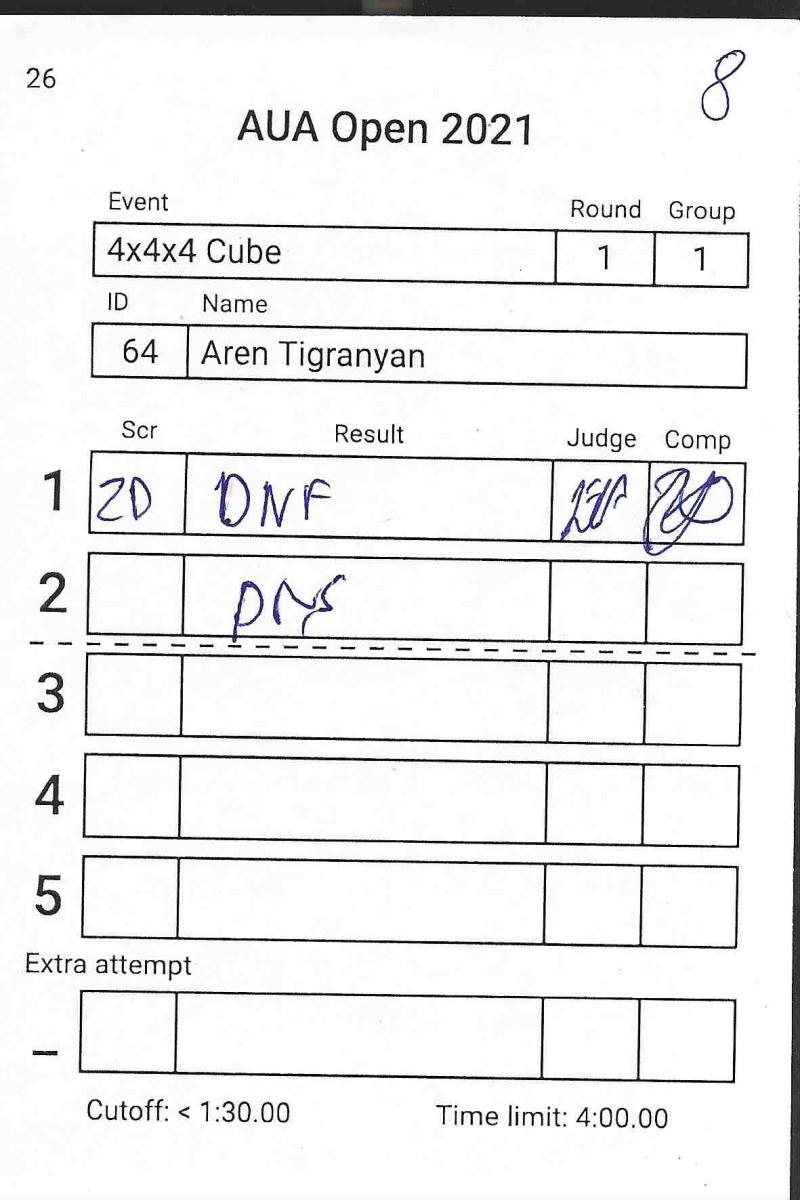 26
8
AUA Open 2021
Event Round Group
4x4x4 Cube 1 1
ID Name
64 Aren Tigranyan
Scr Result Judge Comp
1 ZD DNF
2 DNS
3
4
5
Extra attempt
–
Cutoff: < 1:30.00 Time limit: 4:00.00